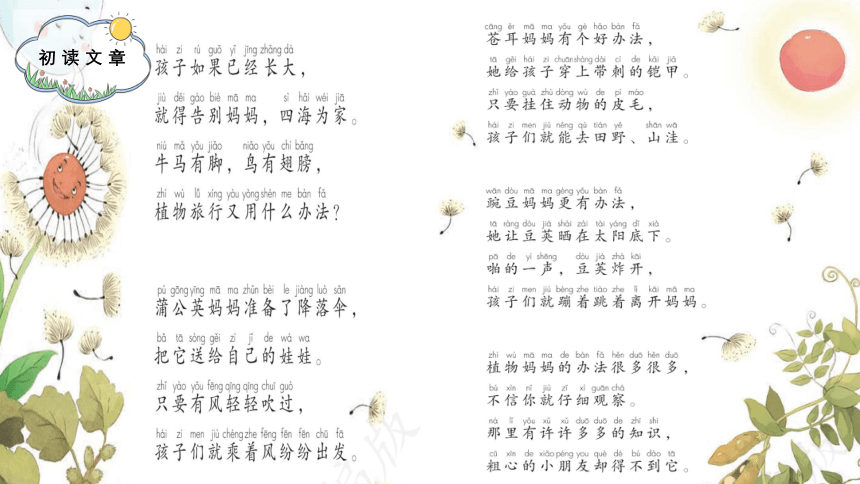 初读文章
hái zi rú guǒ yǐ jīng zhǎng dà
孩子如果已经长大，
jiù děi gào bié mā ma sì hǎi wéi jiā
就得告别妈妈，四海为家。
niú mǎ yǒu jiǎo niǎo yǒu chì bǎng
牛马有脚，鸟有翅膀，
zhí wù lǚ xíng yòu yòng shén me bàn fǎ
植物旅行又用什么办法？
pú gōng yīng mā ma zhǔn bèi le jiàng luò sǎn
蒲公英妈妈准备了降落伞，
bǎ tā sòng gěi zì jǐ de wá wa
把它送给自己的娃娃。
zhǐ yào yǒu fēng qīng qīng chuī guò
只要有风轻轻吹过，
hái zi men jiù chéng zhe fēng fēn fēn chū fā
孩子们就乘着风纷纷出发。
cāng ěr mā ma yǒu gè hǎo bàn fǎ
苍耳妈妈有个好办法，
tā gěi hái zi chuān shàng dài cì de kǎi jiǎ
她给孩子穿上带刺的铠甲。
zhǐ yào guà zhù dòng wù de pí máo
只要挂住动物的皮毛，
hái zi men jiù néng qù tián yě shān wā
孩子们就能去田野、山洼。
wān dòu mā ma gèng yǒu bàn fǎ
豌豆妈妈更有办法，
tā ràng dòu jiá shài zài tài yáng dǐ xià
她让豆荚晒在太阳底下。
pā de yì shēng dòu jiá zhà kāi
啪的一声，豆荚炸开，
hái zi men jiù bèng zhe tiào zhe lí kāi mā ma
孩子们就蹦着跳着离开妈妈。
zhí wù mā ma de bàn fǎ hěn duō hěn duō
植物妈妈的办法很多很多，
bú xìn nǐ jiù zǐ xì guān chá
不信你就仔细观察。
nà lǐ yǒu xǔ xǔ duō duō de zhī shi
那里有许许多多的知识，
cū xīn de xiǎo péng you què dé bú dào tā
粗心的小朋友却得不到它。